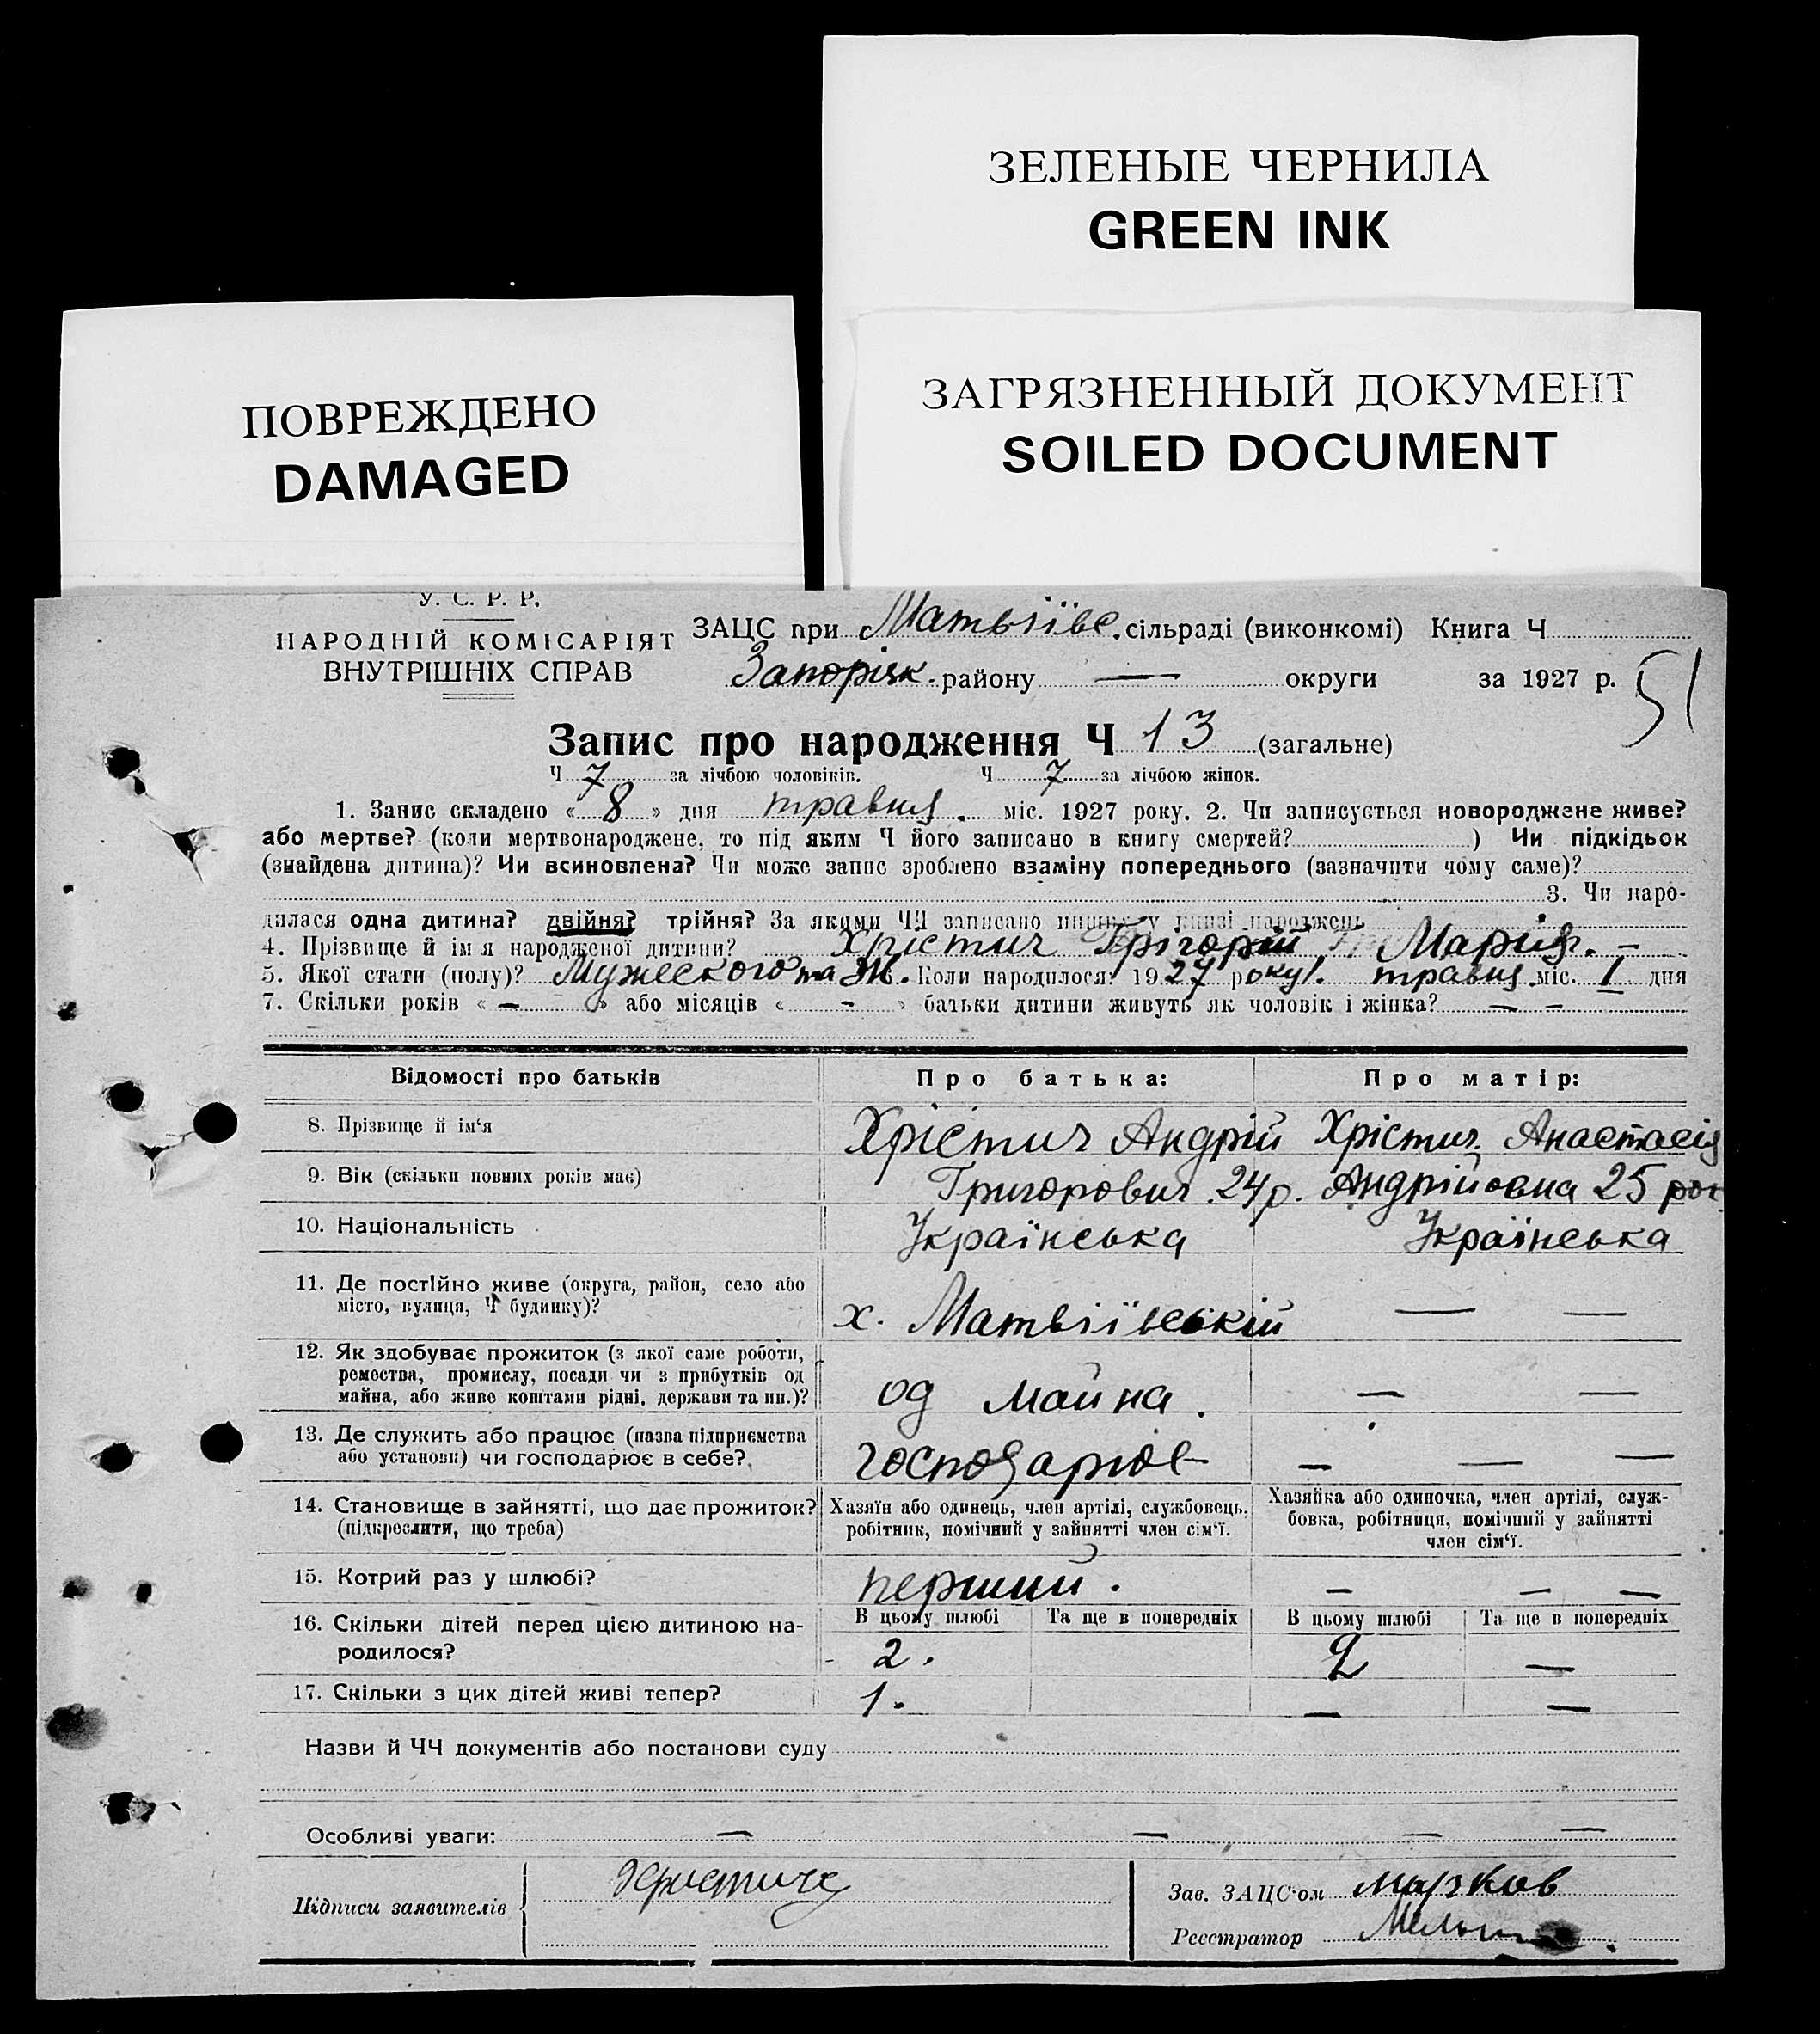 ЗЕЛЕНЫЕ ЧЕРНИЛА
GREEN INK
ПОВРЕЖДЕНО
DAMAGED
ЗАГРЯЗНЕННЫЙ ДОКУМЕНТ
SOILED DOCUMENT
У. С. Р. Р.
НАРОДНІЙ КОМІСАРІЯТ
ВНУТРІШНІХ СПРАВ
ЗАЦС при Матвіївс. сільраді (виконкомі) Книга Ч
Запоріжк. району — округи за 1927 р. 51
Запис про народження Ч 13 (загальне)
Ч 7 за лічбою чоловіків. Ч 7 за лічбою жінок.
1. Запис складено « 8 » дня травня. міс. 1927 року. 2. Чи записується новороджене живе?
або мертве? (коли мертвонароджене, то під яким Ч його записано в книгу смертей? ) Чи підкідьок
(знайдена дитина)? Чи всиновлена? Чи може запис зроблено взаміну попереднього (зазначити чому саме)?
3. Чи наро-
дилася одна дитина? двійня? трійня? За якими ЧЧ записано инших у книзі народжень
4. Прізвище й ім я народженої дитини? Хрістич Грігорій Марія. —
5. Якої стати (полу)? Мужеского та Ж. Коли народилося? 1927 року. травня. міс. 1 дня
7. Скільки років « — » або місяців « - » батьки дитини живуть як чоловік і жінка? — —
Відомості про батьків Про батька: Про матір:
8. Прізвище й ім‘я Хрістич Андрій Хрістич Анастасія
9. Вік (скільки повних років має) Григорович 24 р. Андрійовна 25 рок
10. Національність Українська Українська
11. Де постійно живе (округа, район, село або
місто, вулиця, Ч будинку)? х. Матвіївській — —
12. Як здобуває прожиток (з якої саме роботи,
ремества, промислу, посади чи з прибутків од
майна, або живе коштами рідні, держави та ин.)? од майна. — —
13. Де служить або працює (назва підприємства
або установи) чи господарює в себе? господарює — — —
14. Становище в зайнятті, що дає прожиток?
(підкреслити, що треба)
Хазяїн або одинець, член артілі, службовець,
робітник, помічний у зайнятті член сім‘ї.
Хазяйка або одиночка, член артілі, служ-
бовка, робітниця, помічний у зайнятті
член сім‘ї.
15. Котрий раз у шлюбі? перший. — — —
В цьому шлюбі Та ще в попередніх В цьому шлюбі Та ще в попередніх
16. Скільки дітей перед цією дитиною на-
родилося? 2. 2 —
17. Скільки з цих дітей живі тепер? 1. — —
Назви й ЧЧ документів або постанови суду
Особливі уваги: — — — —
Підписи заявителів
Зав. ЗАЦС‘ом Марков
Реєстратор